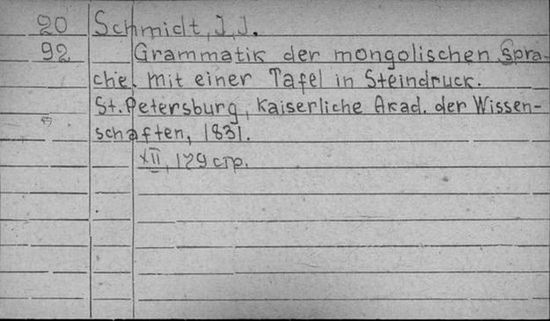 20 Schmidt, J, J.
92 Grammatik der mongolischen Spra-
che. mit einer Tafel in Steindruck.
St. Petersburg, Kaiserliche Akad. der Wissen-
schaften, 1831.
XII, 179 стр.